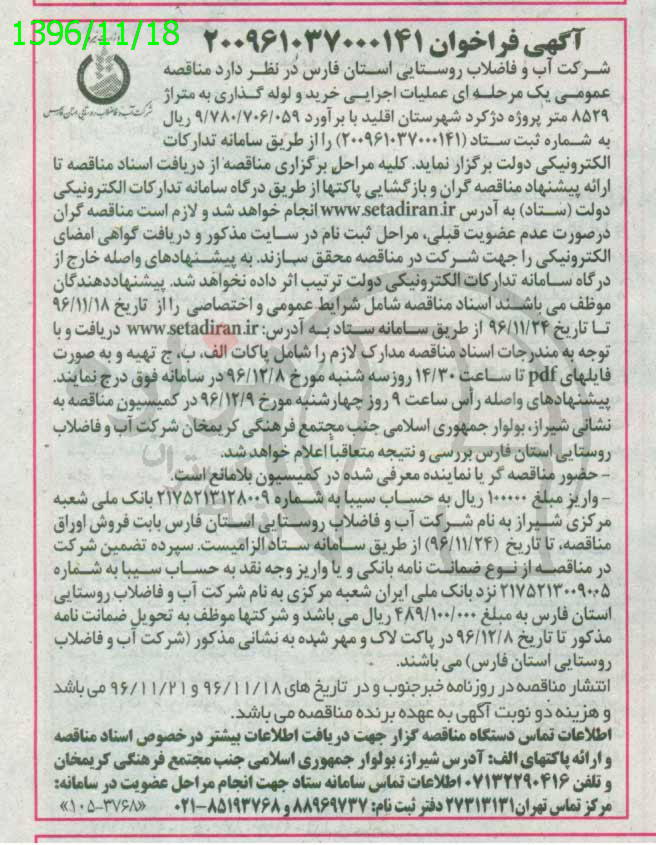 1396/11/18
آگهی فراخوان ۲۰۰۹۶۱۰۳۷۰۰۰۱۴۱
شرکت آب و فاضلاب روستایی استان فارس در نظر دارد مناقصه
عمومی یک مرحله ای عملیات اجرایی خرید و لوله گذاری به متراژ
۸۵۲۹ متر پروژه دژکرد شهرستان اقلید با برآورد ۹/۷۸۰/۷۰۶/۰۵۹ ریال
به شماره ثبت ستاد (۲۰۰۹۶۱۰۳۷۰۰۰۱۴۱) را از طریق سامانه تدارکات
الکترونیکی دولت برگزار نماید. کلیه مراحل برگزاری مناقصه از دریافت اسناد مناقصه تا
ارائه پیشنهاد مناقصه گران و بازگشایی پاکتها از طریق درگاه سامانه تدارکات الکترونیکی
دولت (ستاد) به آدرس www.setadiran.ir انجام خواهد شد و لازم است مناقصه گران
درصورت عدم عضویت قبلی، مراحل ثبت نام در سایت مذکور و دریافت گواهی امضای
الکترونیکی را جهت شرکت در مناقصه محقق سازند. به پیشنهادهای واصله خارج از
درگاه سامانه تدارکات الکترونیکی دولت ترتیب اثر داده نخواهد شد. پیشنهاددهندگان
موظف می باشند اسناد مناقصه شامل شرایط عمومی و اختصاصی را از تاریخ ۹۶/۱۱/۱۸
تا تاریخ ۹۶/۱۱/۲۴ از طریق سامانه ستاد به آدرس: www.setadiran.ir دریافت و با
توجه به مندرجات اسناد مناقصه مدارک لازم را شامل پاکات الف، ب، ج تهیه و به صورت
فایلهای pdf تا ساعت ۱۴/۳۰ روز سه شنبه مورخ ۹۶/۱۲/۸ در سامانه فوق درج نمایند.
پیشنهادهای واصله رأس ساعت ۹ روز چهارشنبه مورخ ۹۶/۱۲/۹ در کمیسیون مناقصه به
نشانی شیراز، بولوار جمهوری اسلامی جنب مجتمع فرهنگی کریمخان شرکت آب و فاضلاب
روستایی استان فارس بررسی و نتیجه متعاقباً اعلام خواهد شد.
- حضور مناقصه گر یا نماینده معرفی شده در کمیسیون بلامانع است.
- واریز مبلغ ۱۰۰۰۰۰ ریال به حساب سیبا به شماره ۲۱۷۵۲۱۳۱۲۸۰۰۹ بانک ملی شعبه
مرکزی شیراز به نام شرکت آب و فاضلاب روستایی استان فارس بابت فروش اوراق
مناقصه، تا تاریخ (۹۶/۱۱/۲۴) از طریق سامانه ستاد الزامیست. سپرده تضمین شرکت
در مناقصه از نوع ضمانت نامه بانکی و یا واریز وجه نقد به حساب سیبا به شماره
۲۱۷۵۲۱۳۰۰۹۰۰۵ نزد بانک ملی ایران شعبه مرکزی به نام شرکت آب و فاضلاب روستایی
استان فارس به مبلغ ۴۸۹/۱۰۰/۰۰۰ ریال می باشد و شرکتها موظف به تحویل ضمانت نامه
مذکور تا تاریخ ۹۶/۱۲/۸ در پاکت لاک و مهر شده به نشانی مذکور (شرکت آب و فاضلاب
روستایی استان فارس) می باشند.
انتشار مناقصه در روزنامه خبرجنوب و در تاریخ های ۹۶/۱۱/۱۸ و ۹۶/۱۱/۲۱ می باشد
و هزینه دو نوبت آگهی به عهده برنده مناقصه می باشد.
اطلاعات تماس دستگاه مناقصه گزار جهت دریافت اطلاعات بیشتر درخصوص اسناد مناقصه
و ارائه پاکتهای الف: آدرس شیراز، بولوار جمهوری اسلامی جنب مجتمع فرهنگی کریمخان
و تلفن ۰۷۱۳۲۲۹۰۴۱۶ اطلاعات تماس سامانه ستاد جهت انجام مراحل عضویت در سامانه:
مرکز تماس تهران ۲۷۳۱۳۱۳۱ دفتر ثبت نام: ۸۸۹۶۹۷۳۷ و ۸۵۱۹۳۷۶۸-۰۲۱ «۱۰۵-۳۷۶۸»